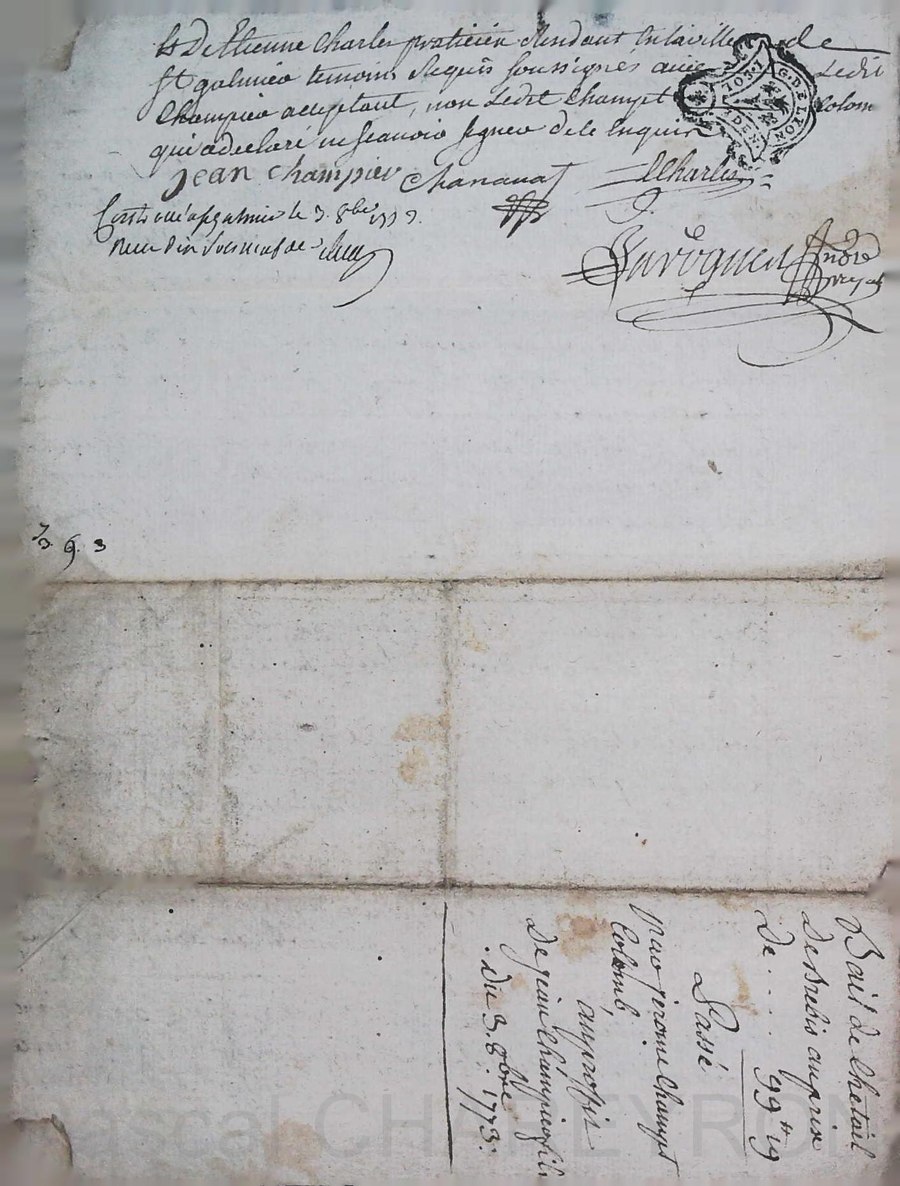 et De Etienne Charles praticien Residant En la ville de
St galmier temoins Requis soussignés avec Ledit
Champier acceptant, non Ledit Champt Colom
qui a declaré ne scavoir signer de ce Enquis
Jean Champier Chanavat Charles
G. DE LYON
Controllé a St galmier le 3. 8bre 1773.
André
3
Bail de Chetail
De Brebis au prix
De . . . . 99tt 19
Passé
par jerome Champt
Colomb,
au proffit
De jean Champier fils
. Du 3. 8bre. 1773.
Pascal CHAREYRON